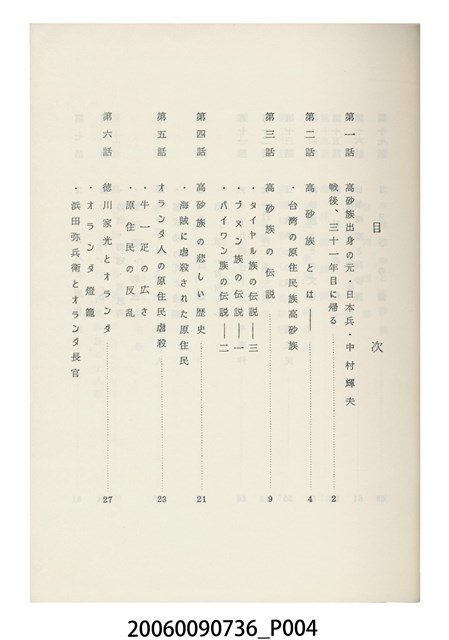 目次
第一話 高砂族出身の元・日本兵・中村輝夫
戦後、三十一年目に帰る 2
第二話 高砂族とは―― 4
・台湾の原住民族高砂族
第三話 高砂族の伝説 9
・タイヤル族の伝説――三
・ブヌン族の伝説――一
・パイワン族の伝説――二
第四話 高砂族の悲しい歴史 21
・海賊に虐殺された原住民
第五話 オランダ人の原住民虐殺 23
・牛一疋の広さ
・原住民の反乱
第六話 徳川家光とオランダ 27
・オランダ燈籠
・浜田弥兵衛とオランダ長官
20060090736_P004